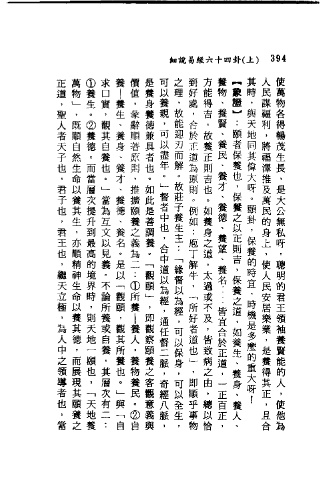 細說易經六十四卦(上) 394
使萬物各得暢茂生長，是大公無私呀，聰明的君王領袖養賢能的人，使他為
人民謀福利，將福澤推及萬民的身上，使人民安居樂業，是養得其正，且合
其時，與天地同其偉大呀。頤卦，保養的時宜，時機是多麼的重大呀！
【象證】：頤者保養也，保養之以正則吉，保養之道，如養生、養身、養人、
養物、養賢、養民、養才、養德、養望、養名……皆宜合於正道，一正百正，
方能得吉。故養正則吉也。如養身之道，太過或不及，皆致病之由，總以恰
到好處，合於正道為原則。例如：庖丁解牛，「所好者道也」，即順乎事物
之理，故能迎刃而解。故莊子養生主：「緣督以為經，可以保身，可以全生，
可以養親，可以盡年。」督者中也，合中道以為經，通任督二脈，奇經八脈，
是養身養德兼具者也。如此是善調養。「觀頤」，即觀察頤養之客觀意義與
價值，彖辭順著原則，推擴頤養之義為二：①所養—養人，養物養民。②自
養—養生、養身、養才、養德、養名。是以「觀頤，觀其所養也。」與「自
求口實，觀其自養也。」當為互文以見義。不論所養或自養，其層次有二：
①養生。②養德。而當層次提升到最高的境界時，則天地一頤也，「天地養
萬物」，既順自然生命以養其生，亦順精神生命以養其德，而展現其頤養之
正道，聖人者天子也，君子也，君王也，繼天立極，為人中之領導者也，當